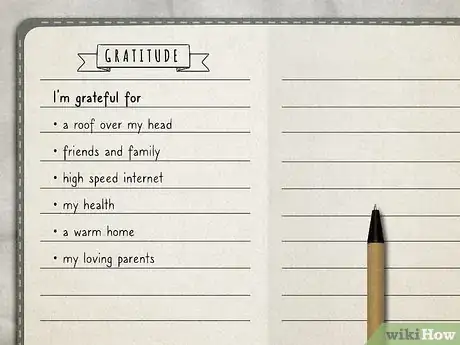 GRATITUDE
I'm grateful for
• a roof over my head
• friends and family
• high speed internet
• my health
• a warm home
• my loving parents
wikiHow